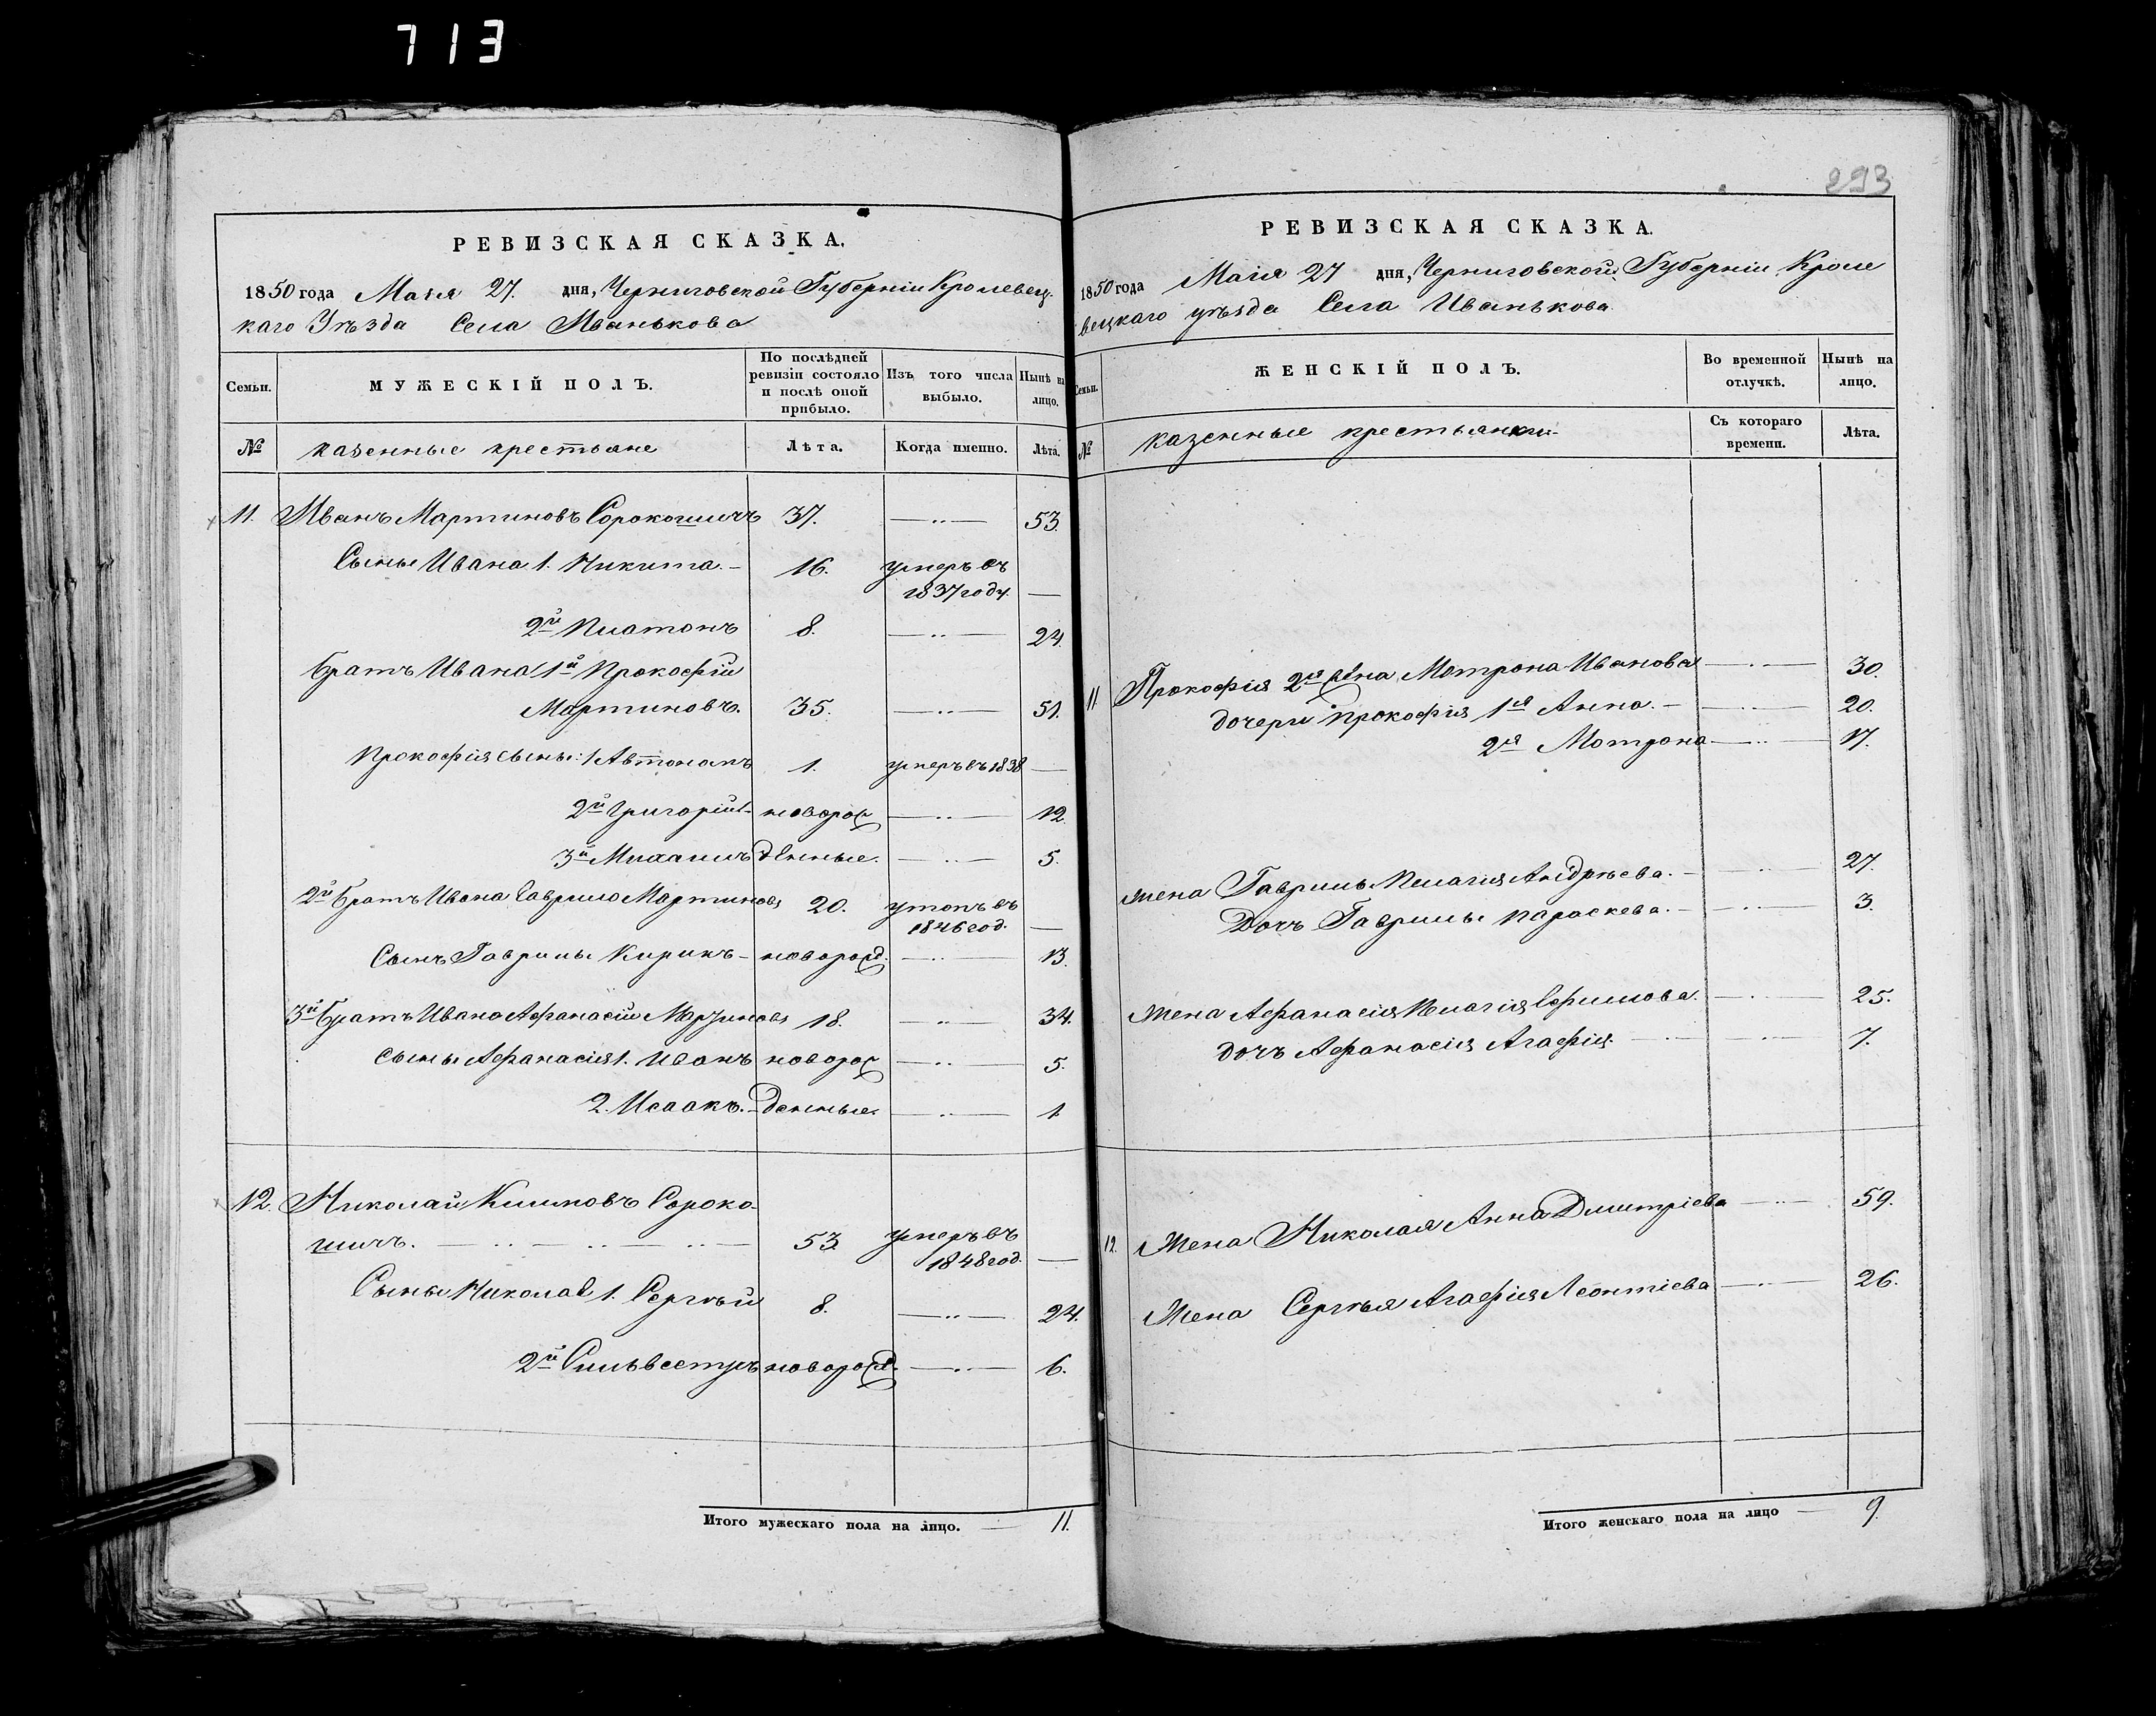 713
РЕВИЗСКАЯ СКАЗКА.
1850 года Маія 27. дня, Черниговской Губерніи Кролевец-
каго Уѣзда Села Иванькова
Семьи. МУЖЕСКІЙ ПОЛЪ. По послѣдней ревизіи состояло и послѣ оной прибыло. Изъ того числа выбыло. Нынѣ на лицо.
№ казенные крестьяне Лѣта. Когда именно. Лѣта.
11. Иванъ Мартиновъ Сорокошичъ 37. —..— 53.
Сыны Ивана 1. Никита. – 16. умеръ въ
1837 году. —
2й Платонъ 8. —..— 24.
Братъ Ивана 1й Прокофій
Мартиновъ. 35. —..— 51.
Прокофія сыны: 1 Автономъ 1. умеръ въ 1838 —
2й Григорій – новорож —..— 12.
3й Михаилъ денные. —..— 5.
2й Братъ Ивана Гаврило Мартиновъ 20. утопъ въ
1846 год. —
Сынъ Гаврилы Кирикъ – новорожд. —..— 13.
3й Братъ Ивана Афанасій Мартиновъ 18. —..— 34.
Сыны Афанасія 1. Иванъ новорож —..— 5.
2. Исаакъ. – денные. —..— 1
12. Николай Климовъ Сороко-
шичъ. —..—..—..— 53. умеръ въ
1848 год. —
Сыны Николая 1. Сергѣй 8. —..— 24.
2й Сильвестръ новорожд. —..— 6.
Итого мужескаго пола на лицо. — 11.
293
РЕВИЗСКАЯ СКАЗКА.
1850 года Маія 27 дня, Черниговской Губерніи Кроле
вецкаго уѣзда Села Иванькова.
Семьи. ЖЕНСКІЙ ПОЛЪ. Во временной отлучкѣ. Нынѣ на лицо.
№ казенные крестьянки Съ котораго времени. Лѣта.
11. Прокофія 2я жена Мотрона Иванова —..— 30.
дочери Прокофія 1я Анна. – —..— 20.
2я Мотрона —..— 17.
жена Гаврилы Пелагія Андрѣева. – —..— 27.
Дочь Гаврилы Параскева. – —..— 3.
Жена Афанасія Пелагія Ефимова. —..— 25.
дочь Афанасія Агафія. —..— 7.
12. Жена Николая Анна Дмитріева —..— 59.
Жена Сергѣя Агафія Леонтіева —..— 26.
Итого женскаго пола на лицо — 9.